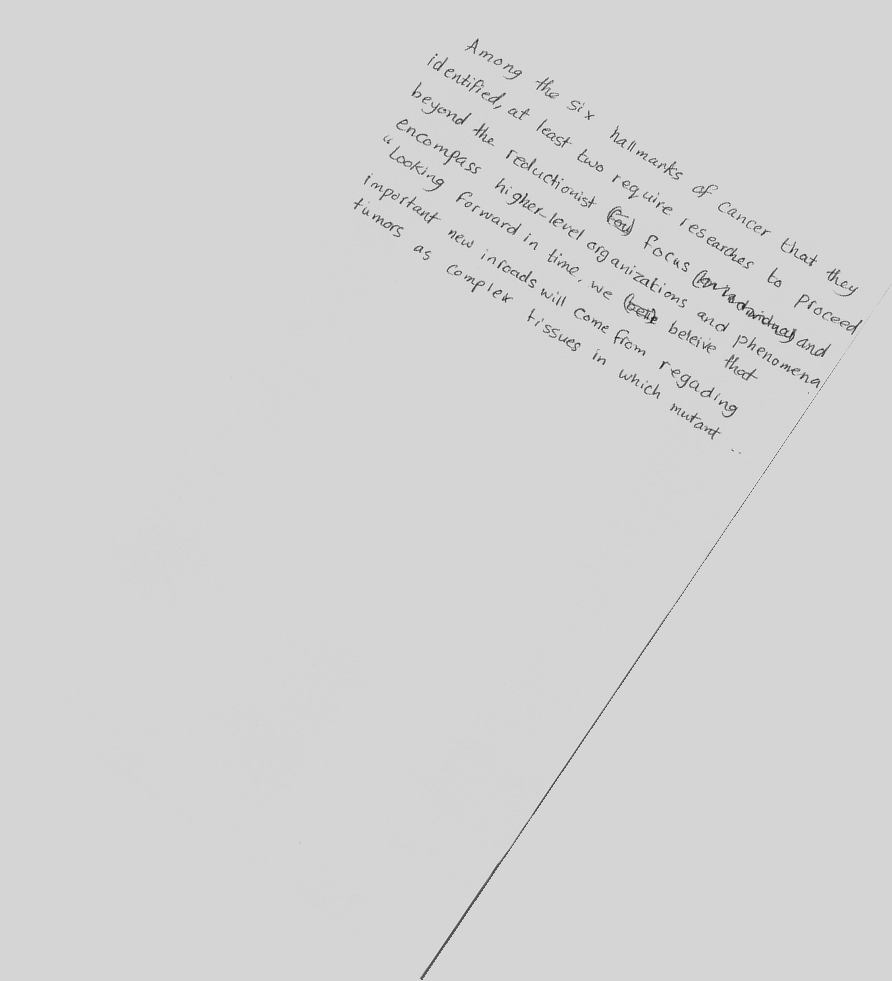 Among the six hallmarks of cancer that they
identified, at least two require researches to proceed
beyond the reductionist focus and
encompass higher-level organizations and phenomena
"Looking forward in time, we beleive that
important new inroads will come from regading
tumors as complex tissues in which mutant ..